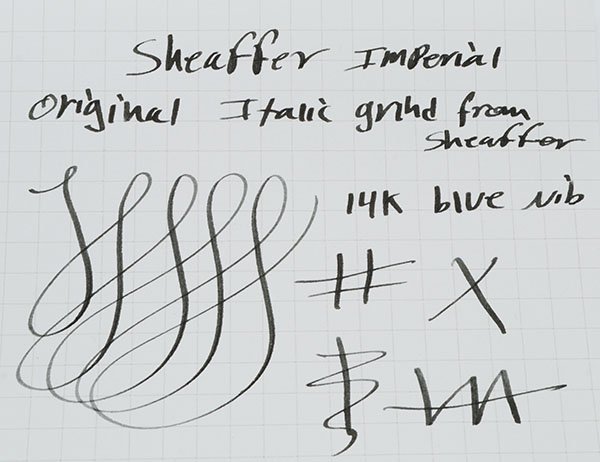 Sheaffer Imperial
Original Italic grind from
Sheaffer
14K blue nib